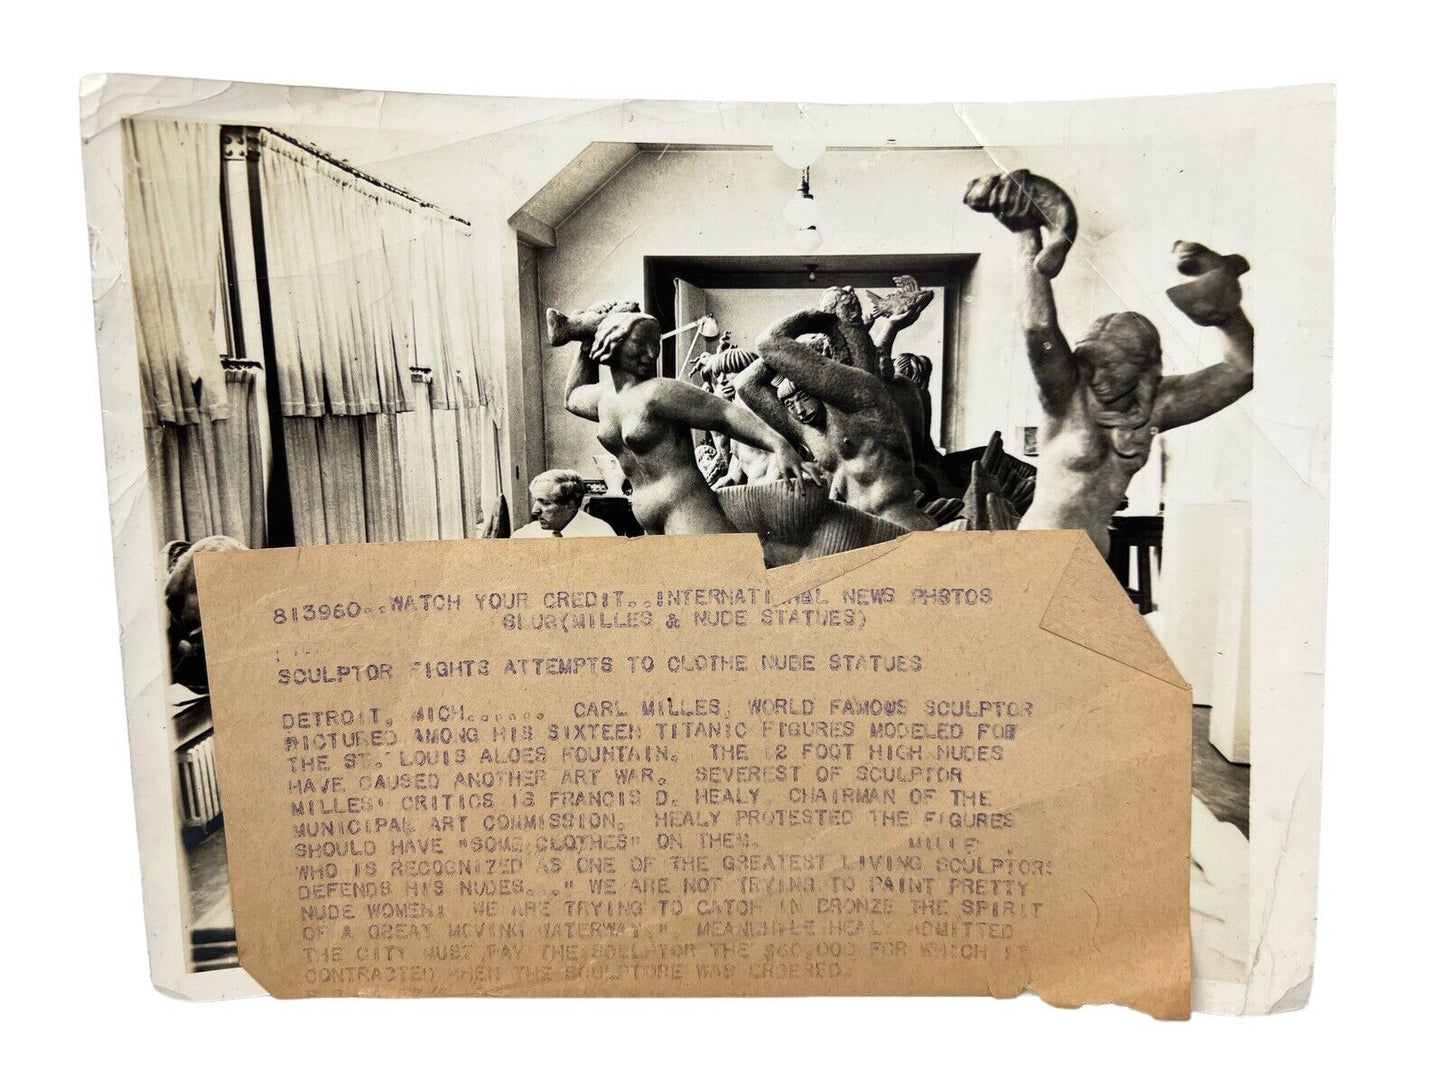 813960..WATCH YOUR CREDIT..INTERNATIONAL NEWS PHOTOS
SLUG(MILLES & NUDE STATUES)
SCULPTOR FIGHTS ATTEMPTS TO CLOTHE NUDE STATUES
DETROIT, MICH...... CARL MILLES, WORLD FAMOUS SCULPTOR
PICTURED AMONG HIS SIXTEEN TITANIC FIGURES MODELED FOR
THE ST. LOUIS ALOES FOUNTAIN. THE 12 FOOT HIGH NUDES
HAVE CAUSED ANOTHER ART WAR. SEVEREST OF SCULPTOR
MILLES' CRITICS IS FRANCIS D. HEALY, CHAIRMAN OF THE
MUNICIPAL ART COMMISSION. HEALY PROTESTED THE FIGURES
SHOULD HAVE "SOME CLOTHES" ON THEM. MILLE
WHO IS RECOGNIZED AS ONE OF THE GREATEST LIVING SCULPTORS
DEFENDS HIS NUDES..." WE ARE NOT TRYING TO PAINT PRETTY
NUDE WOMEN! WE ARE TRYING TO CATCH IN BRONZE THE SPIRIT
OF A GREAT MOVING WATERWAY.". MEANWHILE HEALY ADMITTED
THE CITY MUST PAY THE SCULPTOR THE $60,000 FOR WHICH IT
CONTRACTED WHEN THE SCULPTURE WAS ORDERED.